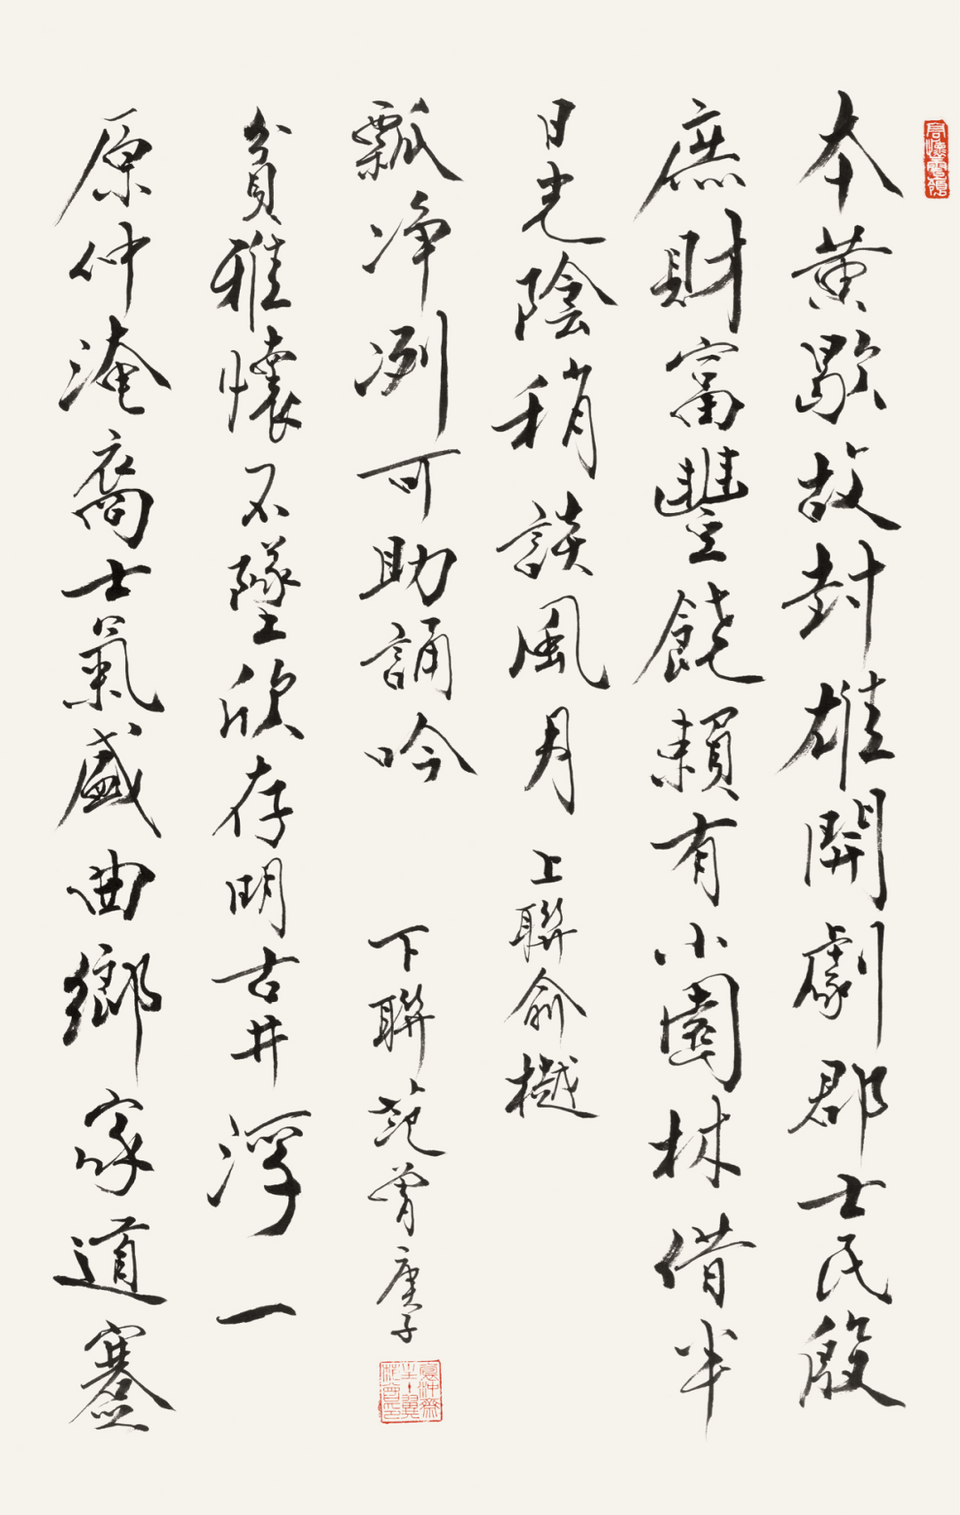 本黄歇故封雄開劇郡士民殷
庶財富豐饒賴有小園林借半
日光陰稍談風月 上聯俞樾
原仲淹裔士氣盛曲鄉家道蹇
貧雅懷不墜欣存明古井浮一
瓢净冽可助誦吟 下聯范曾庚子